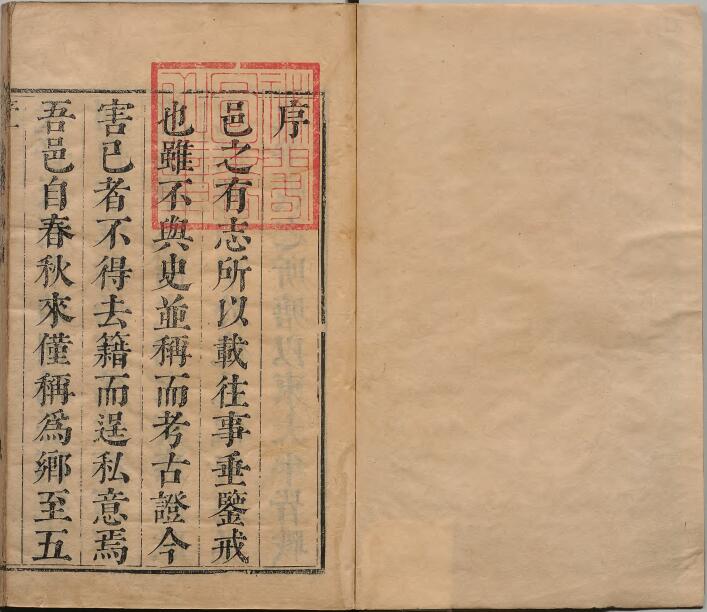 序
邑之有志所以載往事垂鑒戒
也雖不與史並稱而考古證今
害已者不得去籍而逞私意焉
吾邑自春秋來僅稱爲鄉至五
序一